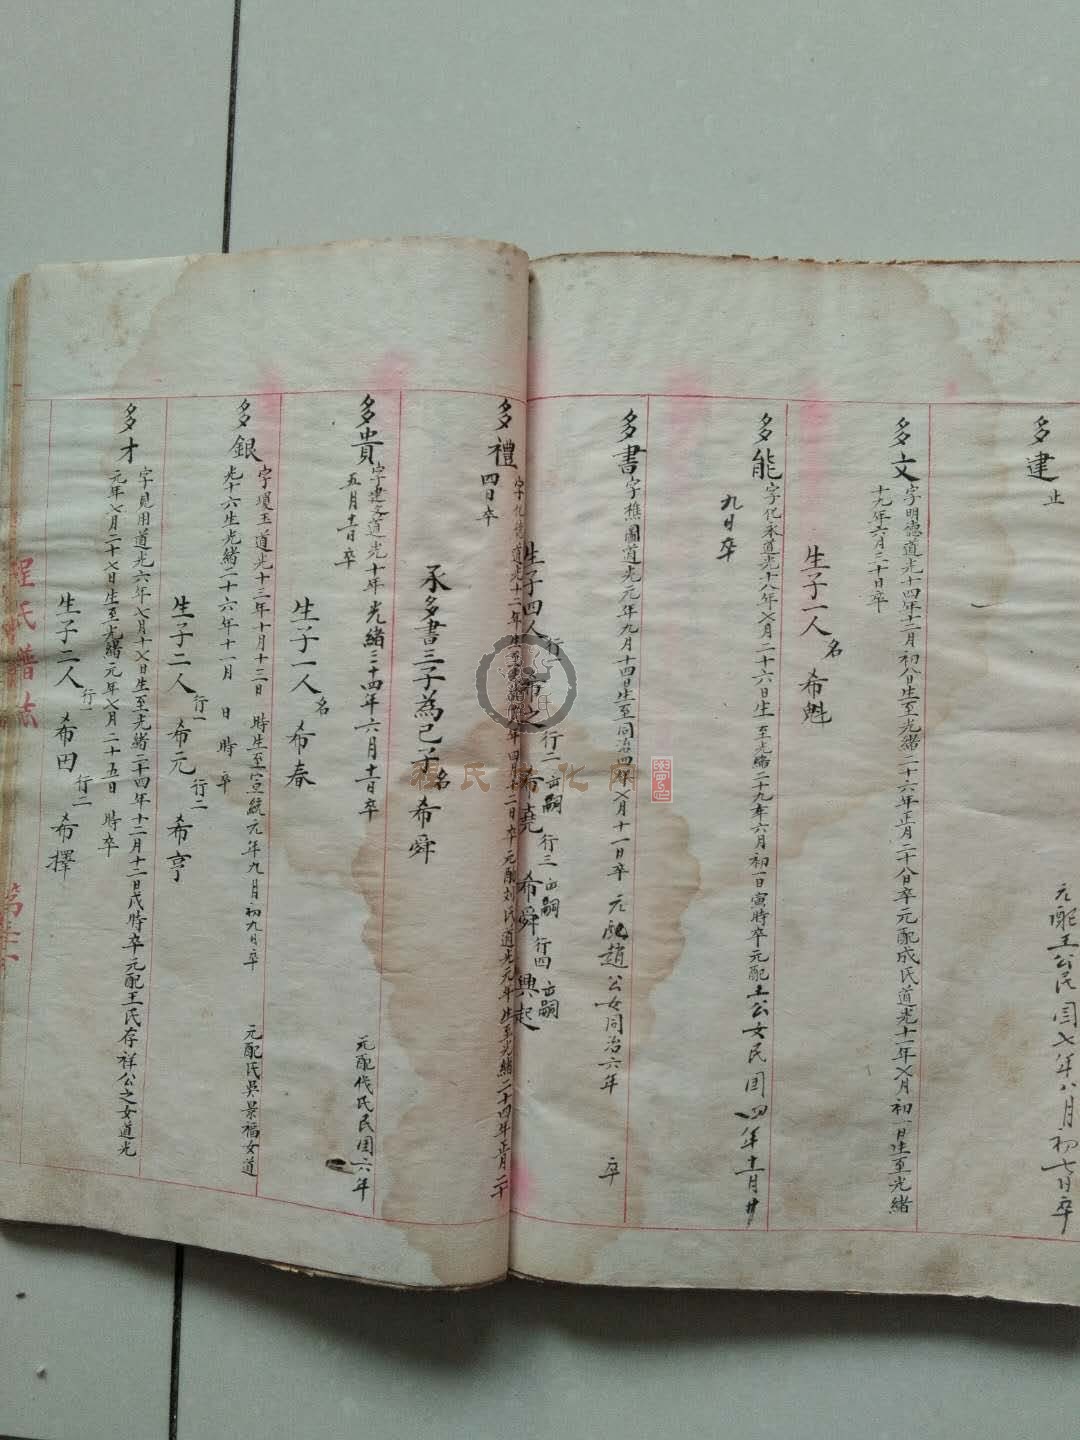 多建 止
元配王公民国七年八月初七日卒
多文 字明德道光十四年十二月初八日生至光緒二十六年正月二十八日卒元配成氏道光十一年七月初一日生至光緒
十九年六月二十日卒
生子一人 名 希魁
多能 字化永道光十八年七月二十六日生至光緒二十九年六月初一日寅時卒元配王公女民国四年十一月廿
九日卒
多書 字樵圃道光元年九月十四日生至同治四年七月十一日卒元配趙公女同治六年 卒
生子四人 行一 希之 行二 出嗣 希堯 行三 出嗣 希舜 行四 出嗣 興起
多禮 道光十二年生至光緒 年四月十二日卒元配刘氏道光元年生至光緒二十四年正月二十
四日卒
承多書三子為己子 名 希舜
多貴 字建 道光十年 光緒三十四年六月十一日卒 元配 氏民国六年
五月十一日卒
生子一人 名 希春
多銀 字瓊玉道光十三年十月十三日 時生至宣統元年九月初九日卒 元配氏吳景福女道
光十六生光緒二十六年十一月 日 時卒
生子二人 行一 希元 行二 希亨
多才 字見用道光六年七月十七日生至光緒二十四年十二月十二日戌時卒元配王氏存祥公之女道光
元年七月二十七日生至光緒元年七月二十五日 時卒
生子二人 行一 希田 行二 希擇
程氏譜志
程氏文化网